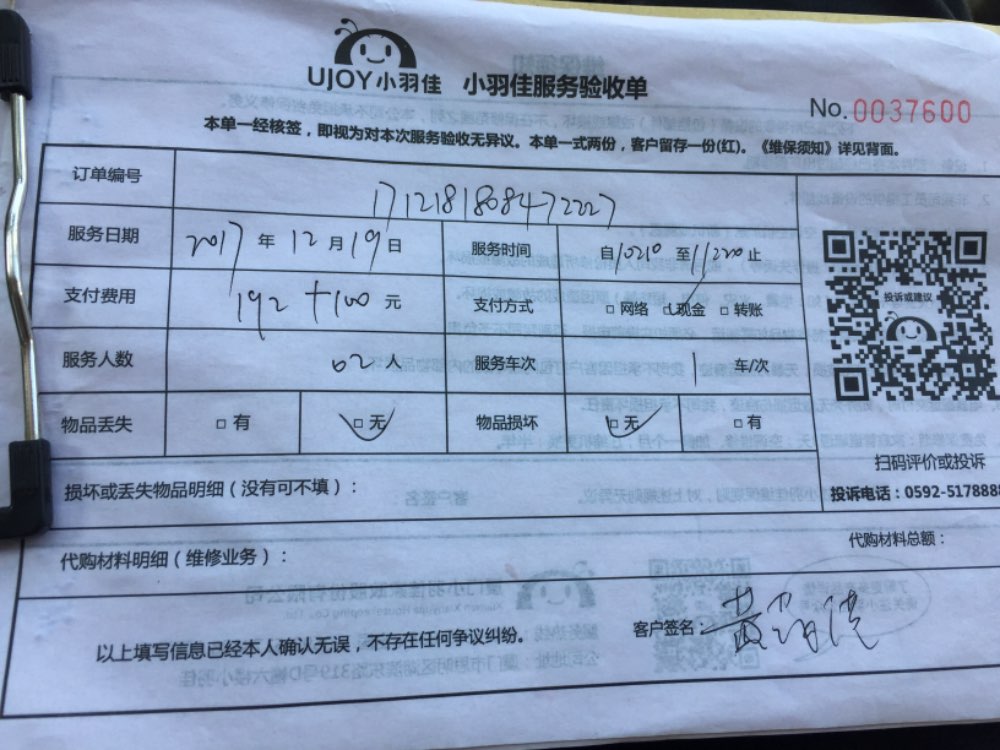 UJOY小羽佳 小羽佳服务验收单
No. 0037600
本单一经核签，即视为对本次服务验收无异议。本单一式两份，客户留存一份(红)。《维保须知》详见背面。
订单编号 1712181808472227
服务日期 2017 年 12 月 19 日 服务时间 自10210 至11220止
支付费用 192+100 元 支付方式 □ 网络 □现金 □ 转账
投诉或建议
服务人数 02 人 服务车次 1 车/次
物品丢失 □ 有 □ 无 物品损坏 □ 无 □ 有
扫码评价或投诉
损坏或丢失物品明细（没有可不填）：
投诉电话：0592-517888
代购材料明细（维修业务）：
代购材料总额：
以上填写信息已经本人确认无误，不存在任何争议纠纷。
客户签名：